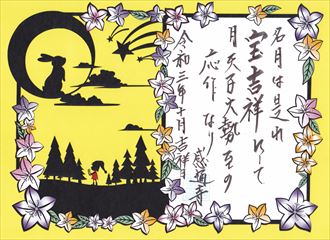 名月は是れ
宝吉祥にして
月天子大勢至の
応作なり
感通寺
令和三年十月吉祥日